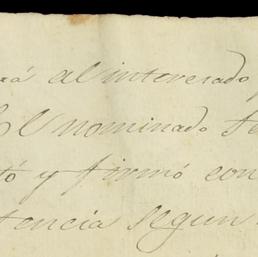 rá al interesado
El nominado Te
tó y firmó con
tencia segun